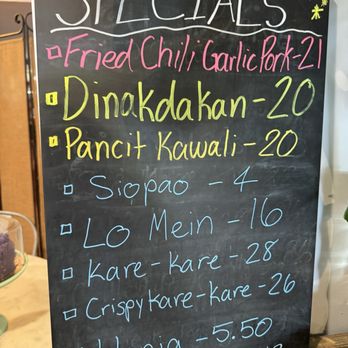 SPECIALS
Fried Chili Garlic Pork-21
Dinakdakan-20
Pancit Kawali-20
Siopao - 4
Lo Mein - 16
Kare-Kare - 28
Crispy Kare-Kare - 26
- 5.50